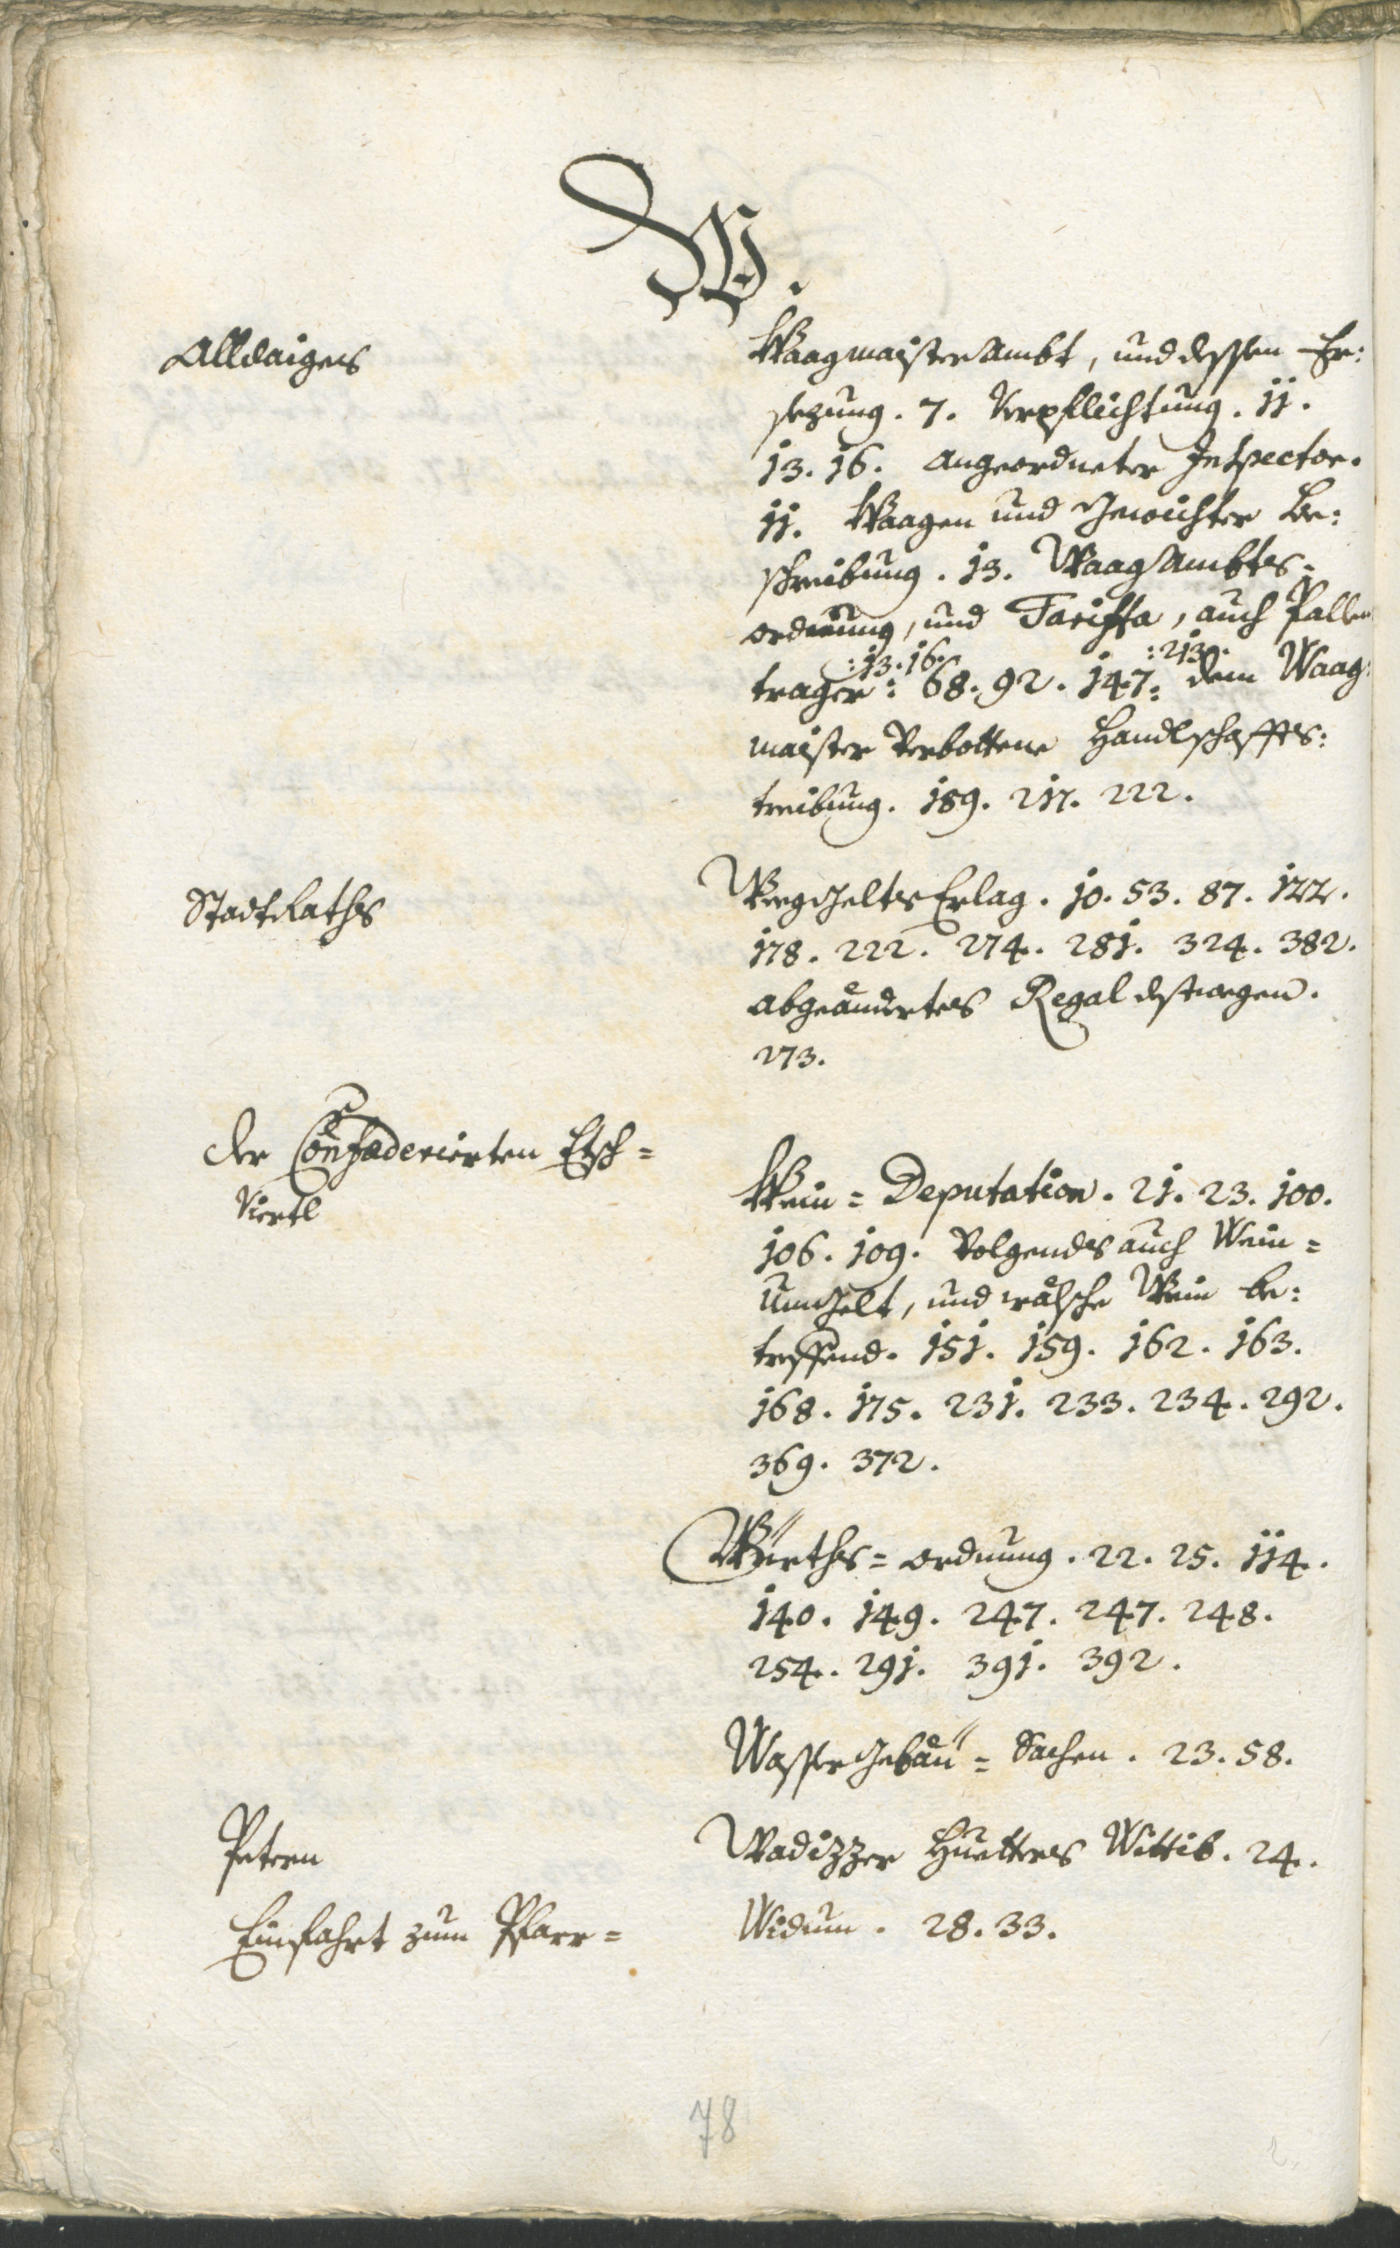 W.
Alldaiges
Waagmaister Ambt, und dessen Er:
sezung. 7. Verpflichtung. 11.
13. 16. angeordneter Inspector.
11. Waagen und Gewichter be:
schreibung. 13. Waag Ambts-
ordnung, und Tariffa, auch Pallen
:13.16. :213.
trager: 68. 92. 147: dem Waag:
maister verbottene Handlschaffts:
treibung. 189. 217. 222.
Stadt Raths
Weeg Gelts Erlag. 10. 53. 87. 122.
178. 222. 274. 281. 324. 382.
abgeändertes Regal destwegen.
273.
der Confæderierten Etsch=
Viertl
Wein= Deputation. 21. 23. 100.
106. 109. Volgends auch Wein=
Umgelt, und wälsche Wein be:
treffend. 151. 159. 162. 163.
168. 175. 231. 233. 234. 292.
369. 372.
Würths= ordnung. 22. 25. 114.
140. 149. 247. 247. 248.
254. 291. 391. 392.
Wasser Gebäu= Sachen. 23. 58.
Petern
Wadizzer Huetters Wittib. 24.
Einfahrt zum Pfarr=
Widum. 28. 33.
78